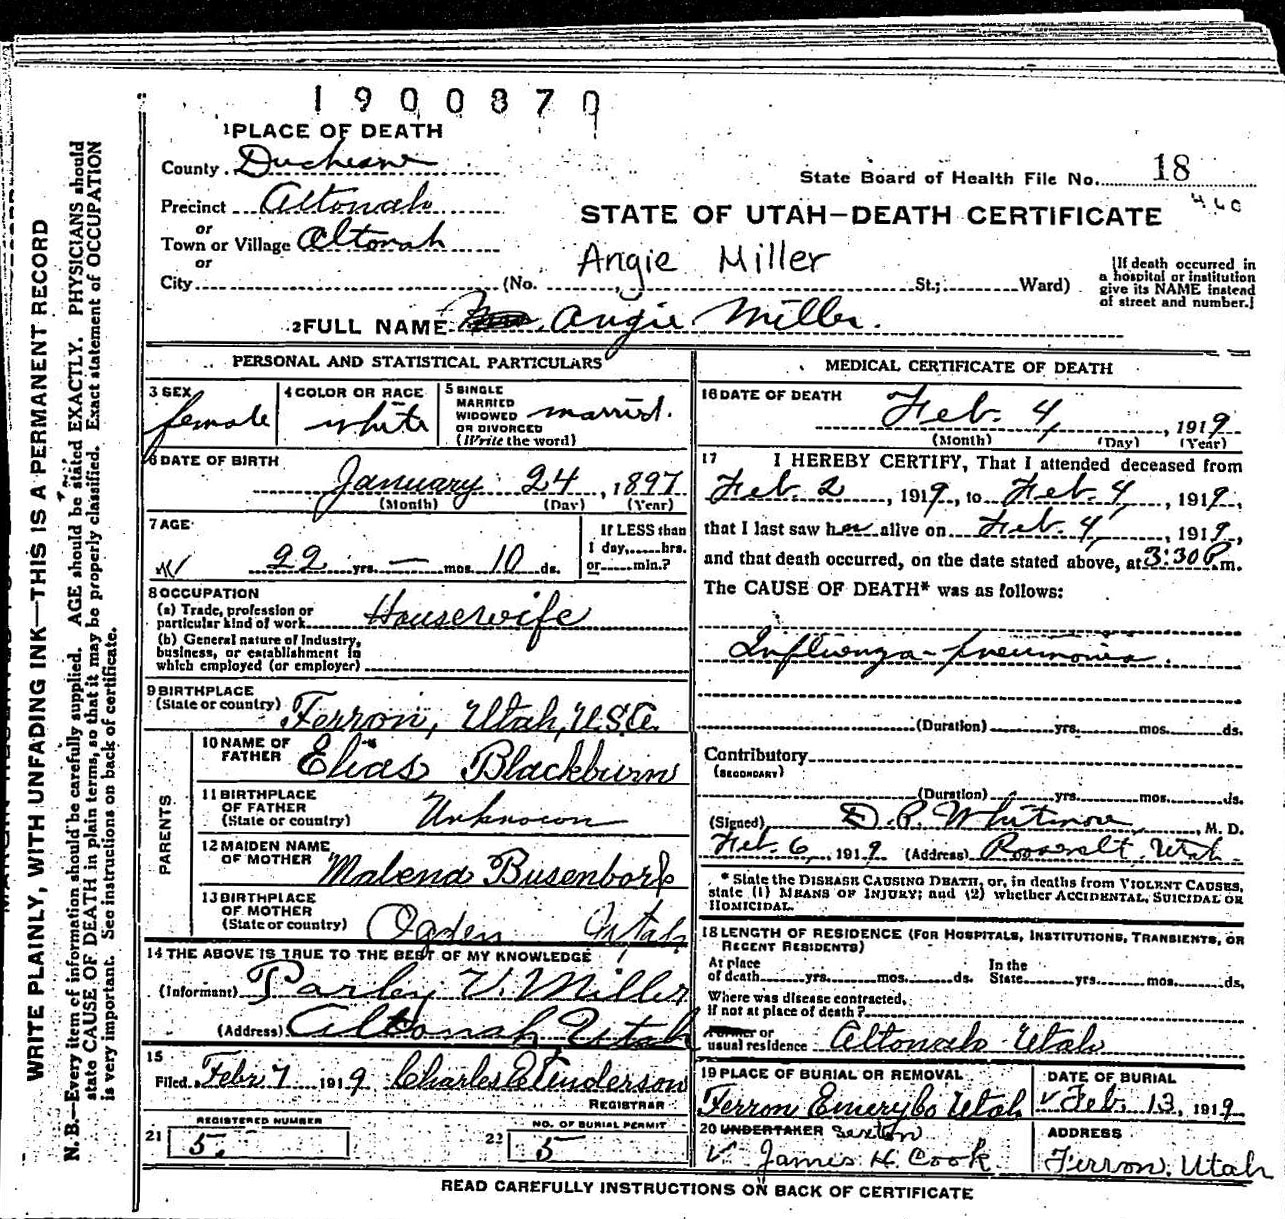 1900870
1 PLACE OF DEATH
County Duchesne
State Board of Health File No. 18
460
Precinct Altonah
or
Town or Village Altonah
or
City (No. St.; Ward)
STATE OF UTAH—DEATH CERTIFICATE
Angie Miller
[If death occurred in
a hospital or institution
give its NAME instead
of street and number.]
2 FULL NAME Angie Miller.
PERSONAL AND STATISTICAL PARTICULARS
3 SEX
female
4 COLOR OR RACE
white
5 SINGLE
MARRIED
WIDOWED
OR DIVORCED
(Write the word)
married.
6 DATE OF BIRTH
January 24, 1897
(Month) (Day) (Year)
7 AGE
22 yrs. — mos. 10 ds.
If LESS than
1 day, hrs.
or min.?
8 OCCUPATION
(a) Trade, profession or
particular kind of work Housewife
(b) General nature of Industry,
business, or establishment in
which employed (or employer)
9 BIRTHPLACE
(State or country) Ferron, Utah, U.S.A.
PARENTS
10 NAME OF
FATHER Elias Blackburn
11 BIRTHPLACE
OF FATHER
(State or country) Unknown
12 MAIDEN NAME
OF MOTHER Malena Busenbark
13 BIRTHPLACE
OF MOTHER
(State or country) Ogden Utah
14 THE ABOVE IS TRUE TO THE BEST OF MY KNOWLEDGE
(Informant) Parley V. Miller
(Address) Altonah, Utah
15
Filed Feb 7 1919 Charles E Anderson
REGISTRAR
REGISTERED NUMBER
21 5.
NO. OF BURIAL PERMIT
22 5
MEDICAL CERTIFICATE OF DEATH
16 DATE OF DEATH
Feb. 4, 1919
(Month) (Day) (Year)
17 I HEREBY CERTIFY, That I attended deceased from
Feb. 2, 1919, to Feb. 4, 1919,
that I last saw her alive on Feb. 4, 1919,
and that death occurred, on the date stated above, at 3:30 P.m.
The CAUSE OF DEATH* was as follows:
Influenza-pneumonia.
(Duration) yrs. mos. ds.
Contributory
(SECONDARY)
(Duration) yrs. mos. ds.
(Signed) D. R. Whitmore, M. D.
Feb. 6, 1919 (Address) Roosevelt, Utah.
* State the DISEASE CAUSING DEATH, or, in deaths from VIOLENT CAUSES,
state (1) MEANS OF INJURY; and (2) whether ACCIDENTAL, SUICIDAL OR
HOMICIDAL.
18 LENGTH OF RESIDENCE (FOR HOSPITALS, INSTITUTIONS, TRANSIENTS, OR
RECENT RESIDENTS)
At place
of death yrs. mos. ds.
In the
State yrs. mos. ds.
Where was disease contracted,
If not at place of death?
Former or
usual residence Altonah Utah
19 PLACE OF BURIAL OR REMOVAL
Ferron Emery Co Utah
DATE OF BURIAL
Feb. 13, 1919
20 UNDERTAKER Sexton
James H. Cook
ADDRESS
Ferron, Utah
READ CAREFULLY INSTRUCTIONS ON BACK OF CERTIFICATE
WRITE PLAINLY, WITH UNFADING INK—THIS IS A PERMANENT RECORD
N. B.—Every item of information should be carefully supplied. AGE should be stated EXACTLY. PHYSICIANS should
state CAUSE OF DEATH in plain terms, so that it may be properly classified. Exact statement of OCCUPATION
is very important. See instructions on back of certificate.